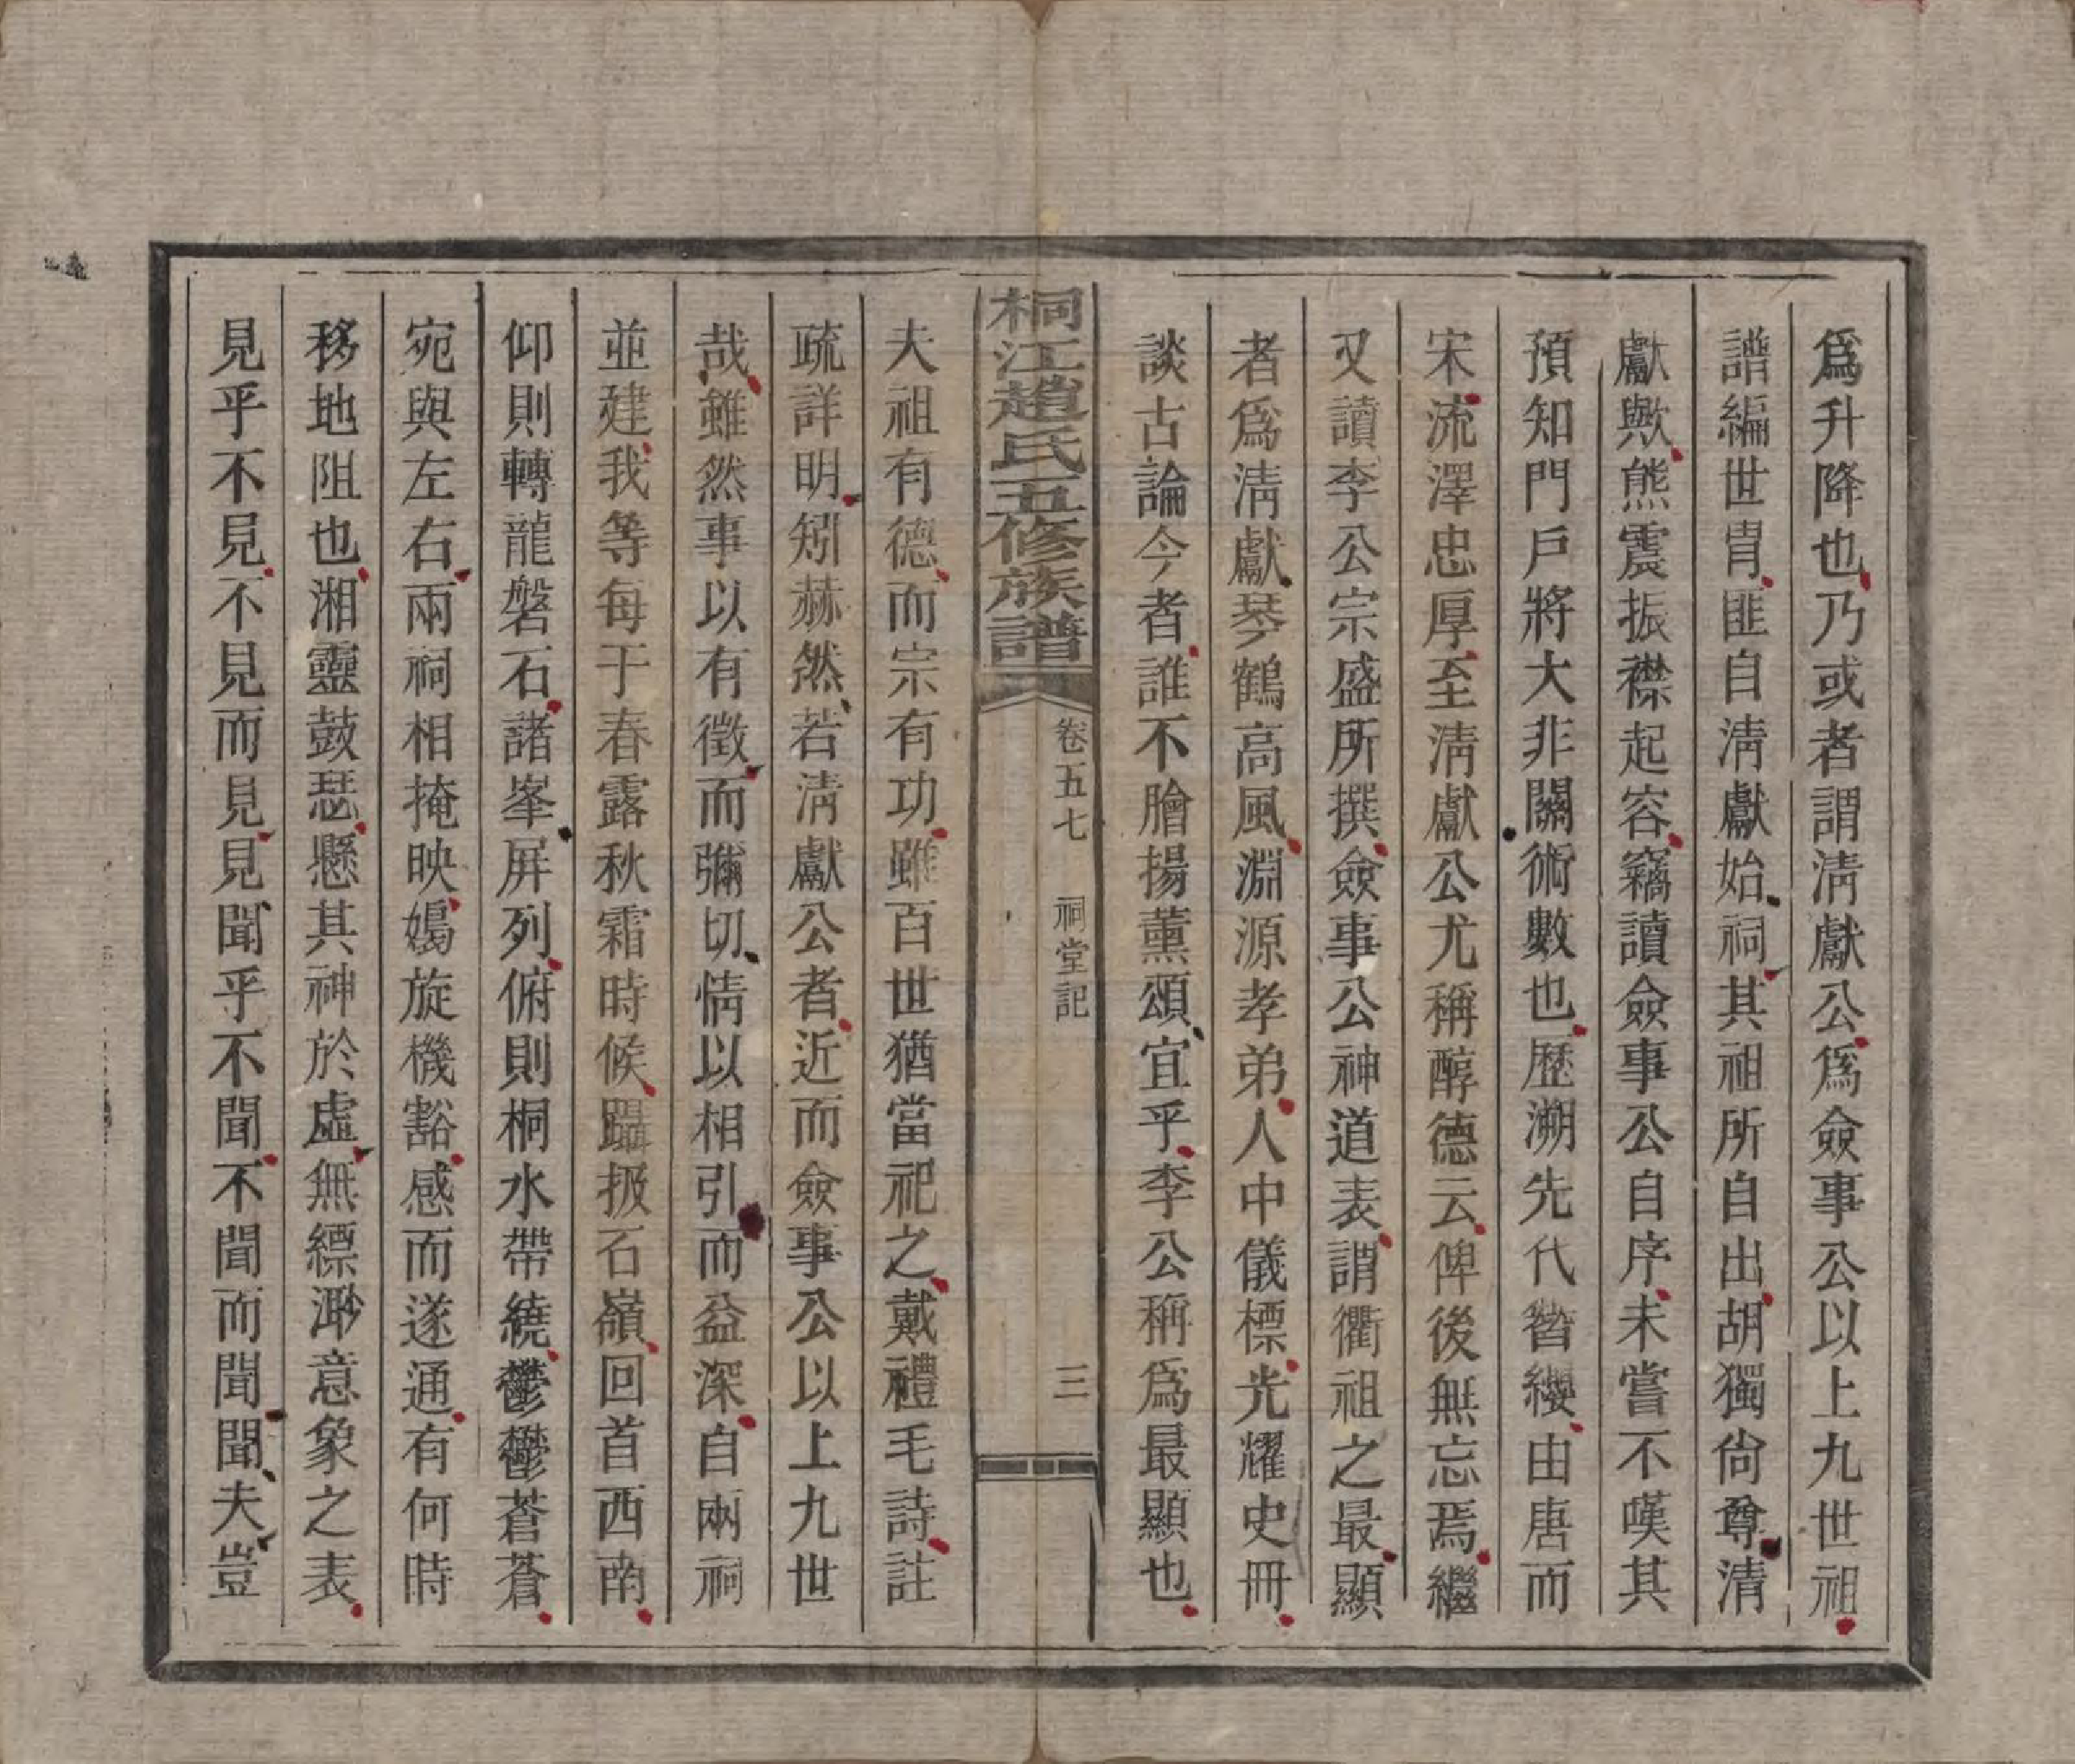 爲升降也乃或者謂淸獻公爲僉事公以上九世祖
譜編世胄匪自淸獻始祠其祖所自出胡獨尙尊清
獻歟熊震振襟起容竊讀僉事公自序未嘗不嘆其
預知門戶將大非關術數也歷溯先代簪纓由唐而
宋流澤忠厚至淸獻公尤稱醇德云俾後無忘焉繼
又讀李公宗盛所撰僉事公神道表謂衢祖之最顯
者爲淸獻琴鶴高風淵源孝弟人中儀標光耀史冊
談古論今者誰不膾揚薰頌宜乎李公稱爲最顯也
桐江趙氏五修族譜 卷五七 祠堂記 三
夫祖有德而宗有功雖百世猶當祀之戴禮毛詩註
疏詳明矧赫然若淸獻公者近而僉事公以上九世
哉雖然事以有徵而彌切情以相引而益深自兩祠
並建我等每于春露秋霜時候躡扱石嶺回首西南
仰則轉龍磐石諸峯屏列俯則桐水帶繞鬱鬱蒼蒼
宛與左右兩祠相掩映嬀旋機豁感而遂通有何時
移地阻也湘靈鼓瑟懸其神於虛無縹渺意象之表
見乎不見不見而見見聞乎不聞不聞而聞聞夫豈